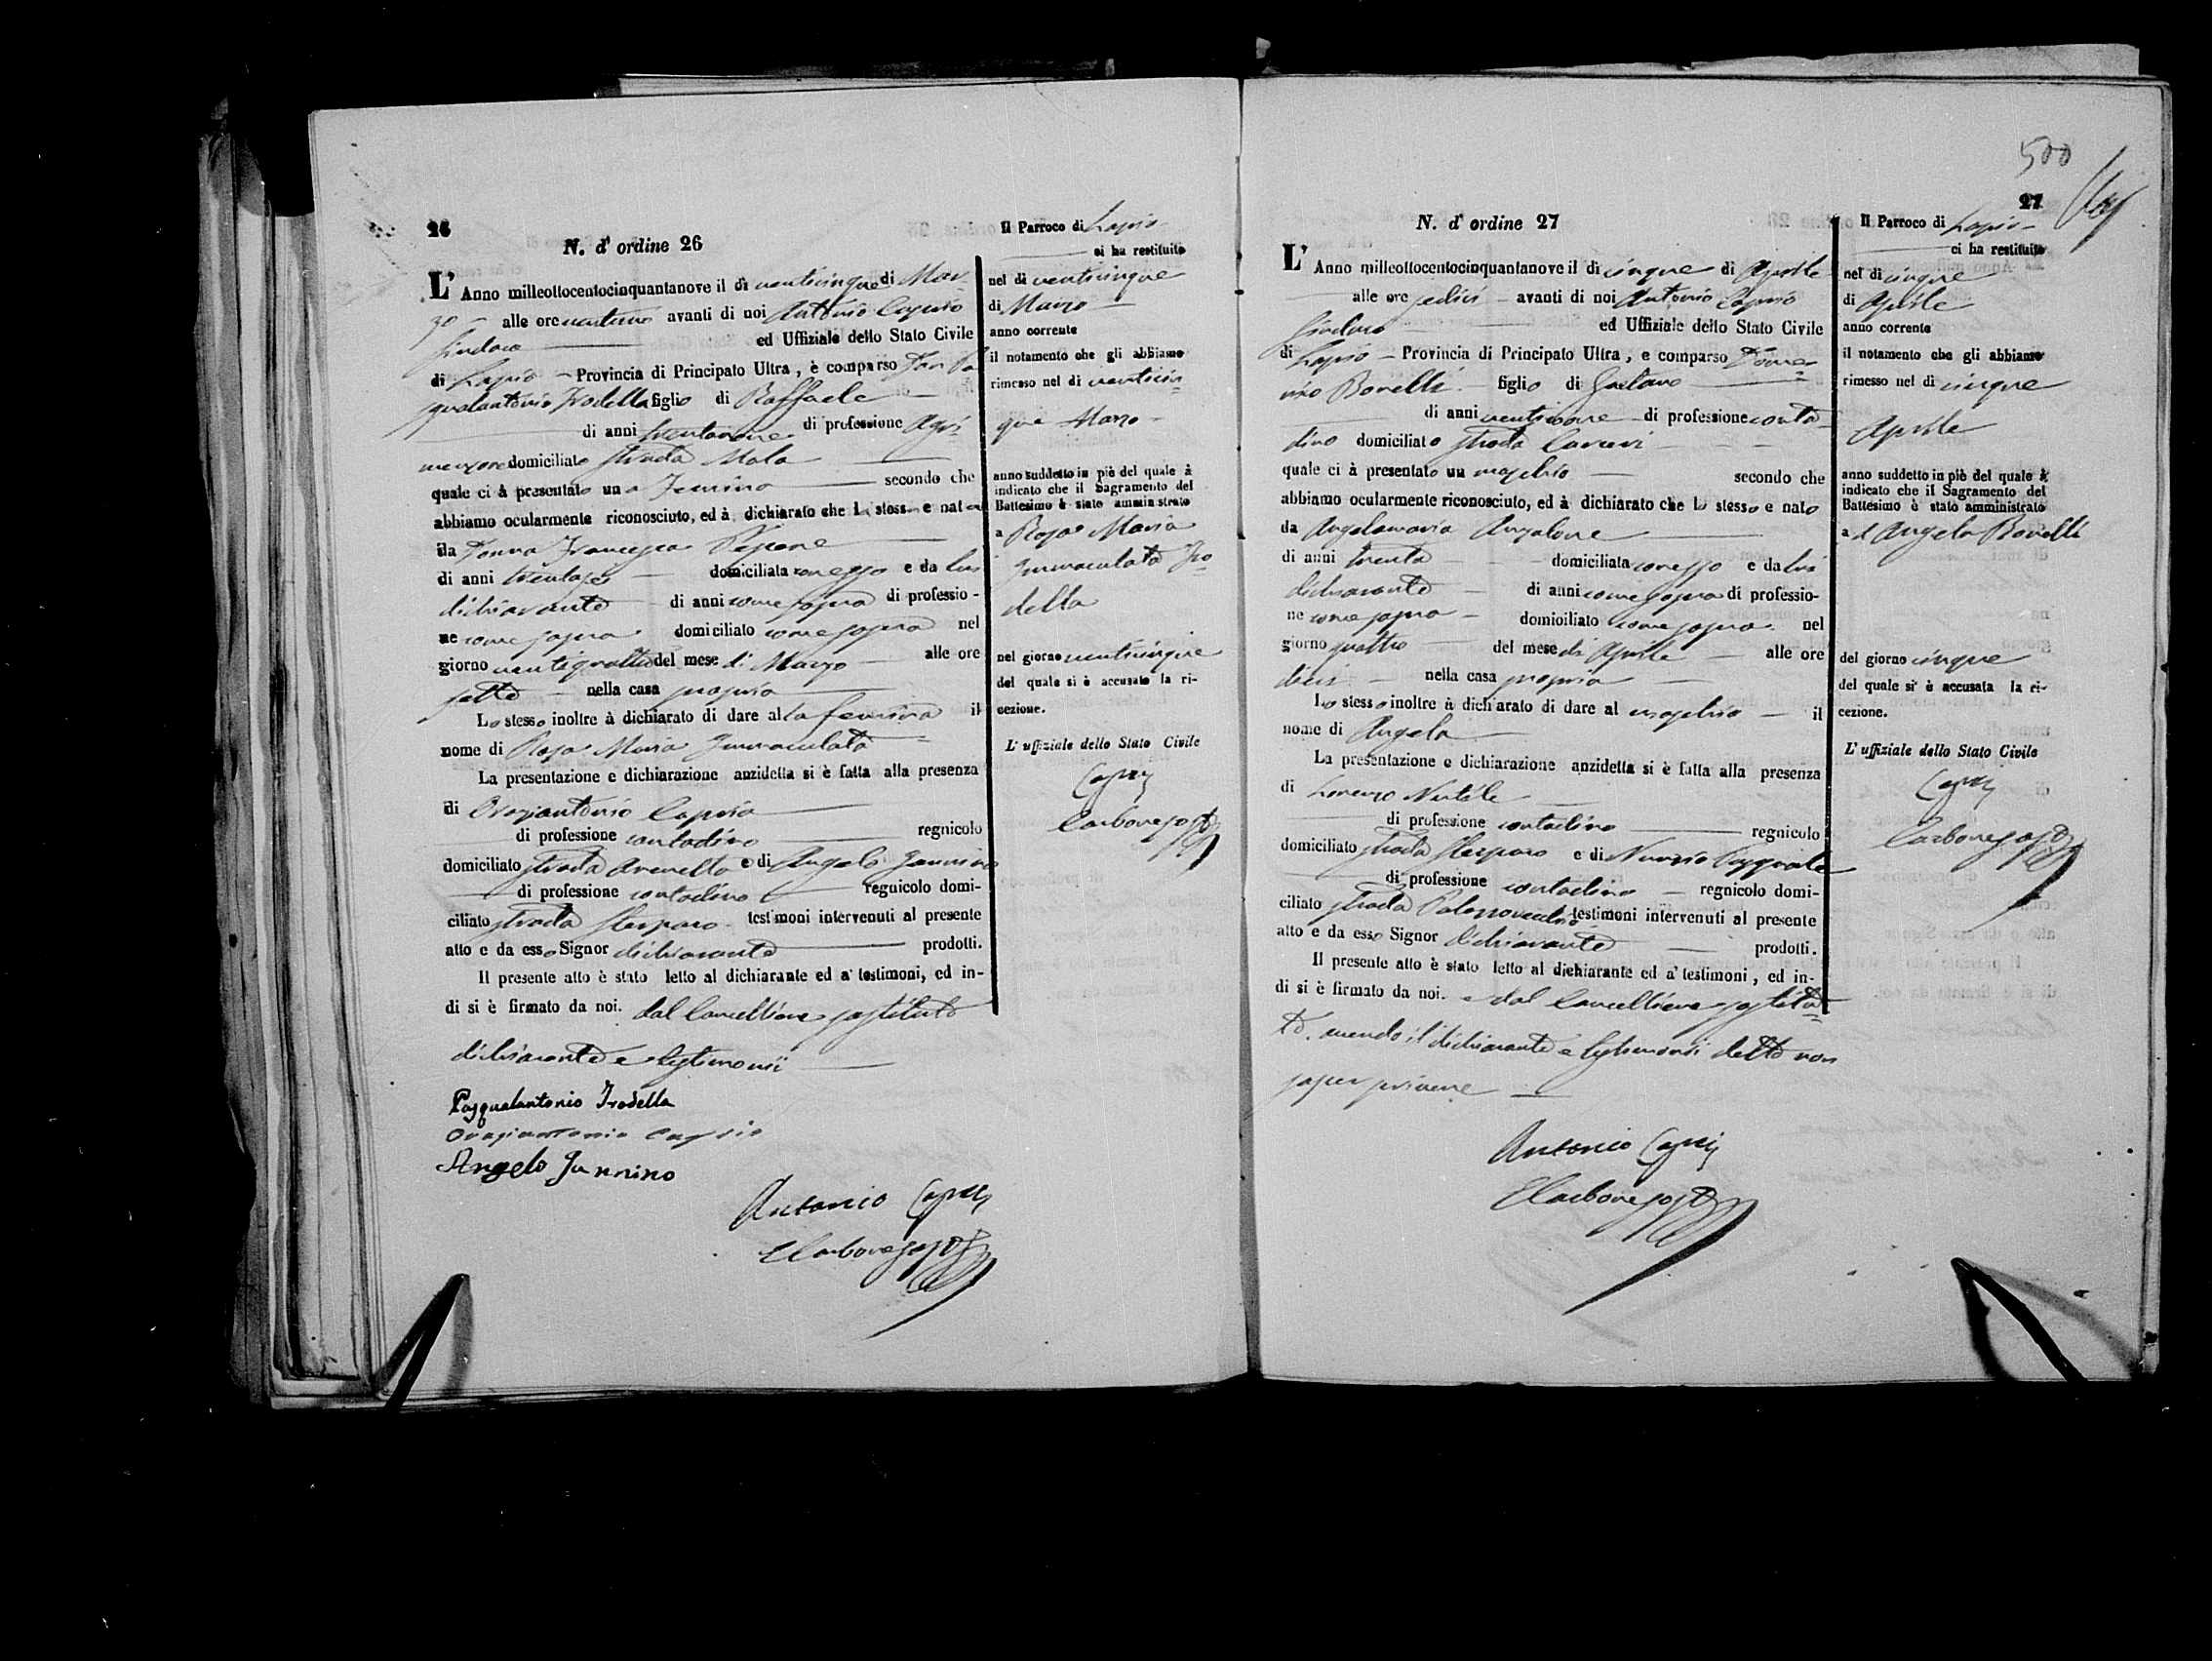 26
N. d'ordine 26
L'Anno milleottocentocinquantanove il dì venticinque di Mar
zo alle ore avanti di noi Antonio Caprio
Sindaco ed Uffiziale dello Stato Civile
di Lapio Provincia di Principato Ultra, è comparso Don Pa
squalantonio Trodella figlio di Raffaele
di anni trentanove di professione Agri
mensore domiciliato strada Mala
quale ci à presentato una femina secondo che
abbiamo ocularmente riconosciuto, ed à dichiarato che la stessa e nata
da Donna Francesca Pepone
di anni trentasei domiciliata con esso e da lui
dichiarante di anni come sopra di professio-
ne come sopra domiciliato come sopra nel
giorno ventiquattro del mese di Marzo alle ore
sette nella casa propria
Lo stesso inoltre à dichiarato di dare alla femina il
nome di Rosa Maria Immaculata
La presentazione e dichiarazione anzidetta si è fatta alla presenza
di Oraziantonio Caprio
di professione contadino regnicolo
domiciliato strada Arenella e di Angelo Jannino
di professione contadino regnicolo domi-
ciliato strada testimoni intervenuti al presente
atto e da esso Signor dichiarante prodotti.
Il presente atto è stato letto al dichiarante ed a' testimoni, ed in-
di si è firmato da noi. dal Cancelliere sostituto
dichiarante e testimonii
Pasqualantonio Trodella
Oraziantonio Caprio
Angelo Jannino
Antonio Caprio
E Carbone sosto
Il Parroco di Lapio
ci ha restituito
nel dì venticinque
di Marzo
anno corrente
il notamento che gli abbiamo
rimesso nel dì venticin
que Marzo
anno suddetto in piè del quale à
indicato che il Sagramento del
Battesimo è stato amministrato
a Rosa Maria
Immaculata Tro
della
nel giorno venticinque
del quale si è accusata la ri-
cezione.
L'uffiziale dello Stato Civile
Caprio
Carbone sosto
500
27
N. d'ordine 27
L'Anno milleottocentocinquantanove il dì cinque di Aprile
alle ore sedici avanti di noi Antonio Caprio
Sindaco ed Uffiziale dello Stato Civile
di Lapio Provincia di Principato Ultra, e comparso Dome
nico Bonelli figlio di Gaetano
di anni ventinove di professione conta
dino domiciliato strada
quale ci à presentato un maschio secondo che
abbiamo ocularmente riconosciuto, ed à dichiarato che lo stesso e nato
da Angelamaria Anzalone
di anni trenta domiciliata con esso e da lui
dichiarante di anni come sopra di professio-
ne come sopra domioiliato come sopra nel
giorno quattro del mese di Aprile alle ore
dieci nella casa propria
Lo stesso inoltre à dichiarato di dare al maschio il
nome di Angelo
La presentazione e dichiarazione anzidetta si è fatta alla presenza
di Lorenzo
di professione contadino regnicolo
domiciliato strada e di Nunzio Pasquale
di professione contadino regnicolo domi-
ciliato strada Palazzovecchio testimoni intervenuti al presente
atto e da esso Signor dichiarante prodotti.
Il presente atto è stato letto al dichiarante ed a' testimoni, ed in-
di si è firmato da noi. e dal Cancelliere sostitu
to, avendo il dichiarante e testimonii detto non
saper scrivere
Antonio Caprio
E Carbone sosto
Il Parroco di Lapio
ci ha restituito
nel dì cinque
di Aprile
anno corrente
il notamento che gli abbiamo
rimesso nel dì cinque
Aprile
anno suddetto in piè del quale à
indicato che il Sagramento del
Battesimo è stato amministrato
ad Angelo Bonelli
del giorno cinque
del quale si è accusata la ri-
cezione.
L'uffiziale dello Stato Civile
Caprio
Carbone sosto